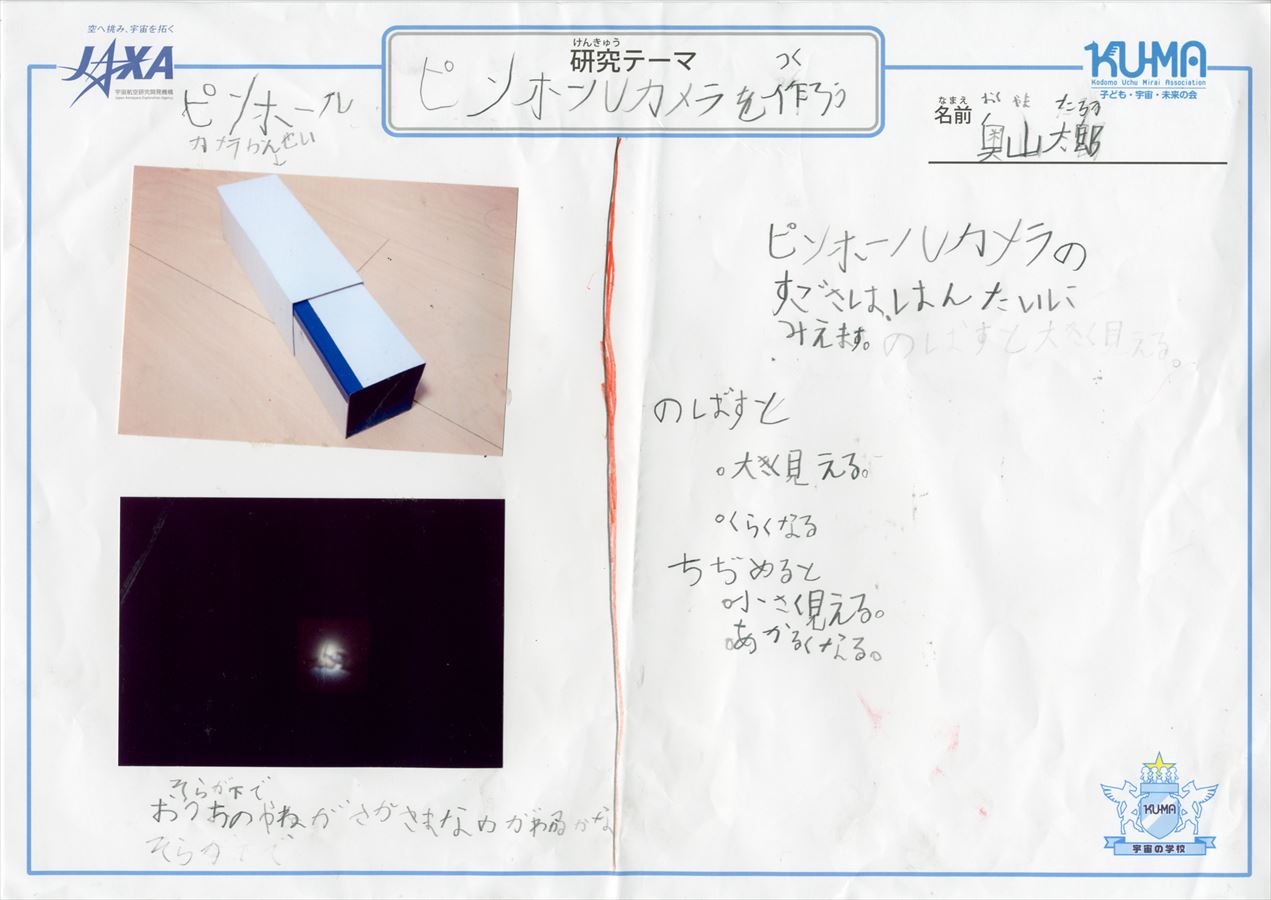 空へ挑み、宇宙を拓く
JAXA
宇宙航空研究開発機構
Japan Aerospace Exploration Agency
けんきゅう
研究テーマ
つく
ピンホールカメラを作ろう
KUMA
Kodomo Uchu Mirai Association
子ども・宇宙・未来の会
なまえ
名前
おく やま たろう
奥山太郎
ピンホール
カメラかんせい
↓
そらが下で
おうちのやねがさかさまなのがわかるかな
そらが下で
ピンホールカメラの
すごさは、はんたいに
みえます。のばすと大きく見える。
のばすと
。大きく見える。
。くらくなる
ちぢめると
。小さく見える。
。あかるくなる。
KUMA
宇宙の学校